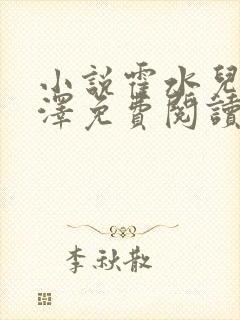 小說霍水兒
澤免費閱讀
李秋散